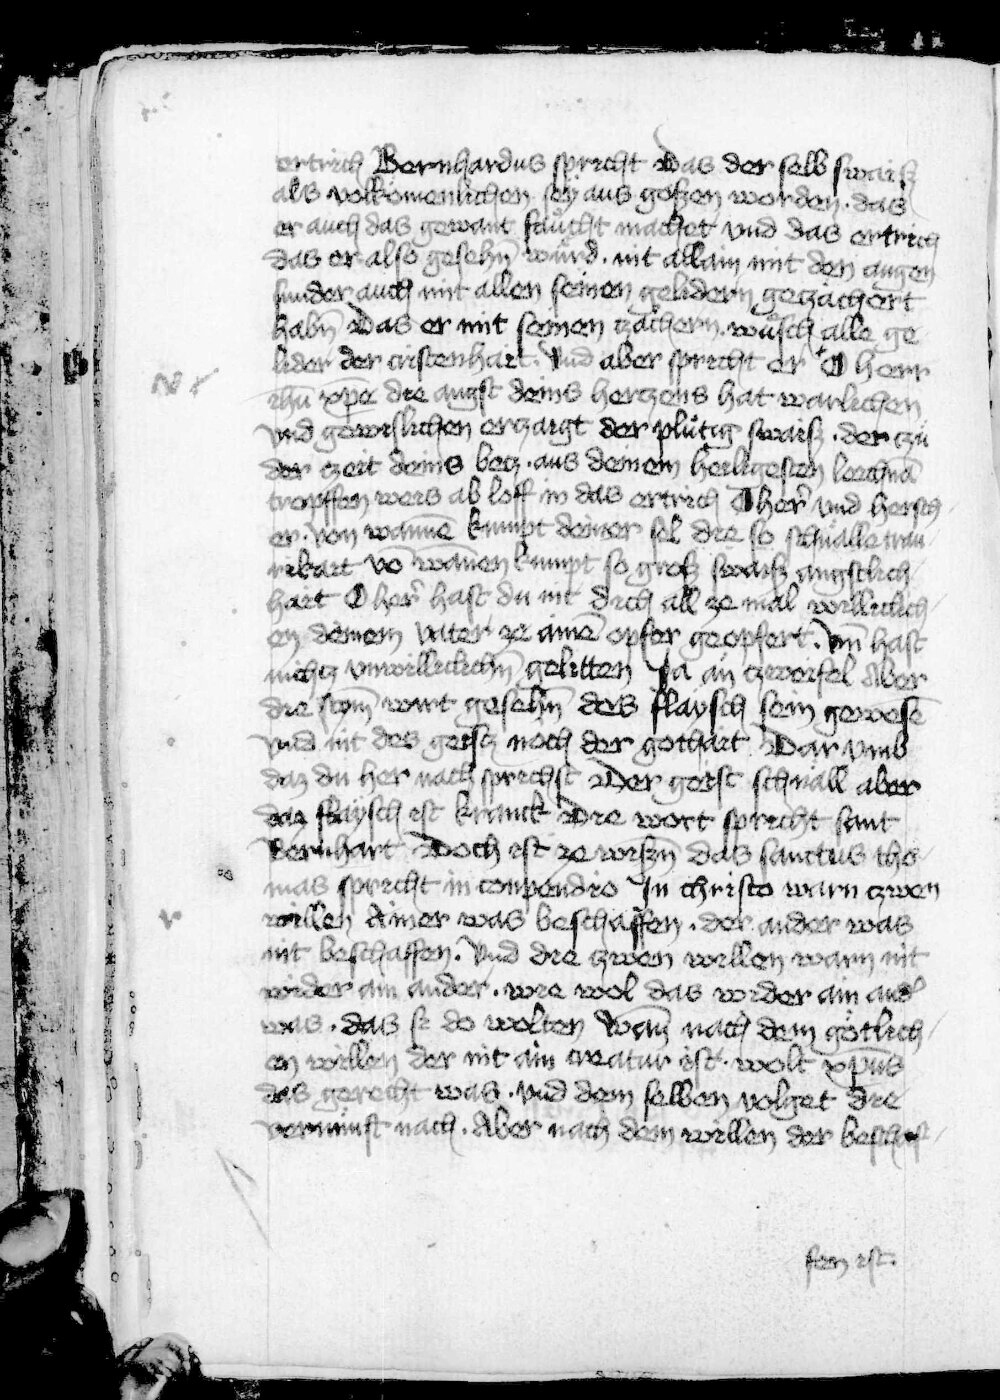 ertrich Bernhardus spricht Das der selb swaisz
als volkömenlichen sey aus goszen worden. das
er auch das gewant faücht machet vnd das ertrich
das er also gesehn̄ würd. nit allain mit den augen
sunder auch mit allen seinen gelidern geczächert
habn̄ Das er mit seinen zächern. wüsch alle ge
lider der cristenhait. Vnd aber spricht er O herr
ihū xp̄e die angst deins herczens hat warlichen
vnd gewislichen erczaigt der plütig swaisz. der czü
der czeit deins betz. aus deinem heiligesten leichnā
tropffen weis ab loff in das ertrich O her̄ vnd hersch/
er. von wannē kumpt deiner sel die so schnälle trau/
rikait vō wānen kumpt so grosz swaisz angstlich/
hait O her̄ hast du nit dich all ze mal williclich/
en deinem vater ze ainē opfer geopfert. vn̄ hast
nichtz vnwilliclichn̄ gelitten Ja an zweifel Aber
die stym̄ wirt gesehn̄ des flaysch sein gewesē
vnd nit des geistz noch der gothait Dar vmb
daz du her nach sprichst Der geist schnäll aber
daz flaysch ist kranck Die wort spricht sant
Bernhart Doch ist ze wiszn̄ das sanctus tho
mas spricht in conpendio In christo warn zwen
willen Ainer was beschaffen. der ander was
nit beschaffen. Vnd die zwen willen warn nit
wider ain ander. wie wol das wider ain and̾
was. das si do wolten Wan̄ nach dem götlich/
en willen der nit ain creatur ist. wolt xp̄us
das gerecht was. vnd dem selben volget die
vernunft nach. Aber nach dem willen der beschaf/
fen ist.